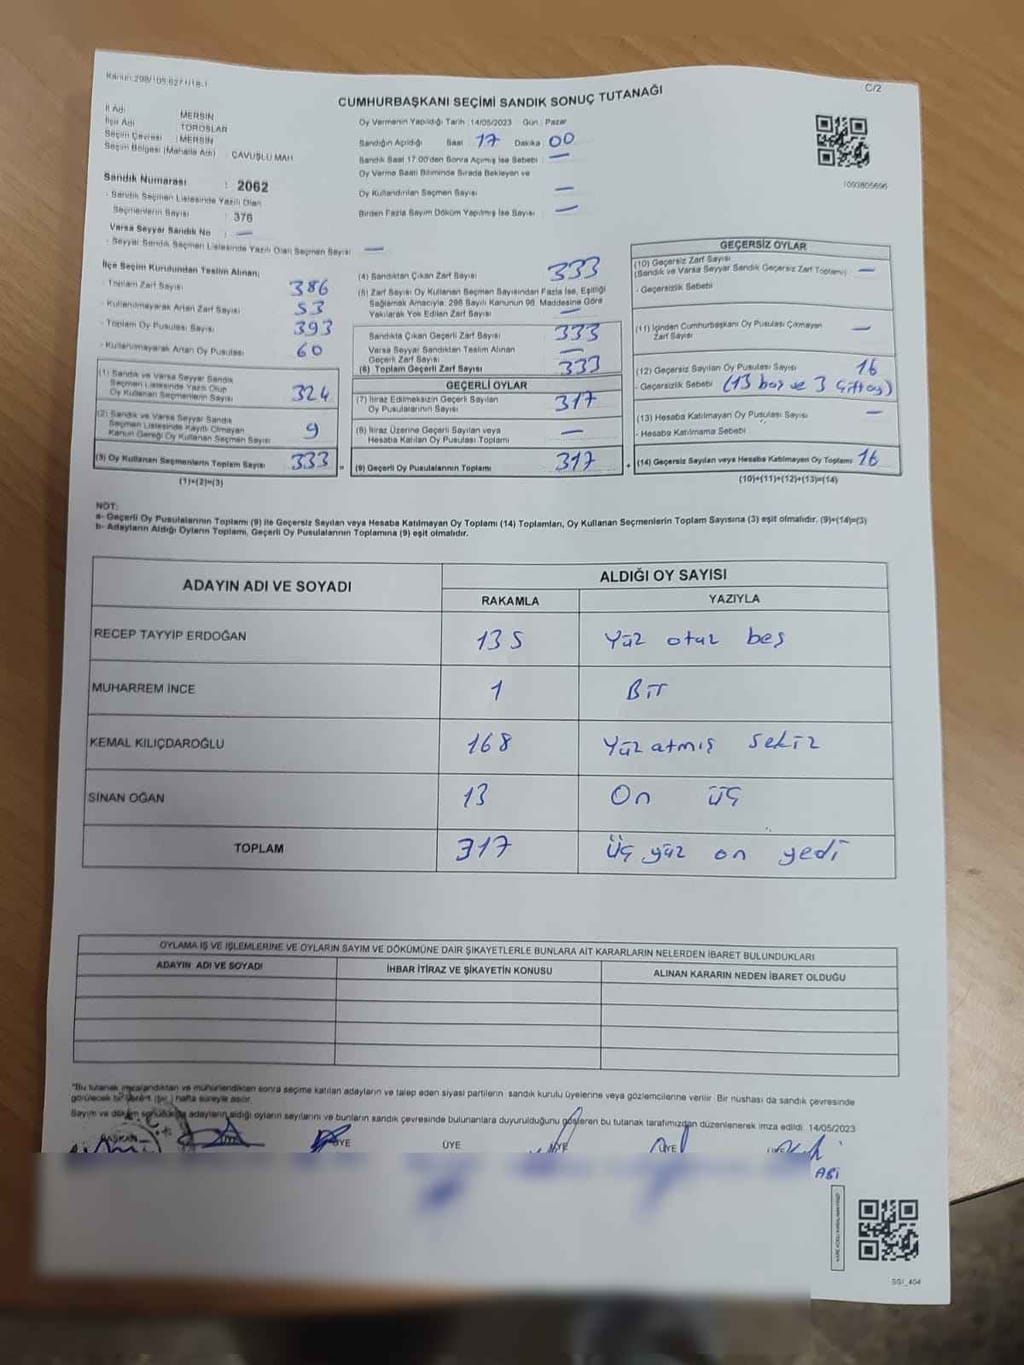 Kanun:298/105,6271/18-1
C/2
CUMHURBAŞKANI SEÇİMİ SANDIK SONUÇ TUTANAĞI
İl Adı : MERSİN
İlçe Adı : TOROSLAR
Seçim Çevresi : MERSİN
Seçim Bölgesi (Mahalle Adı) : ÇAVUŞLU MAH
Sandık Numarası : 2062
- Sandık Seçmen Listesinde Yazılı Olan
Seçmenlerin Sayısı : 376
Varsa Seyyar Sandık No : —
- Seyyar Sandık Seçmen Listesinde Yazılı Olan Seçmen Sayısı —
Oy Vermenin Yapıldığı Tarih :14/05/2023 Gün : Pazar
Sandığın Açıldığı Saat 17 Dakika 00
Sandık Saat 17:00'den Sonra Açılmış İse Sebebi —
Oy Verme Saati Bitiminde Sırada Bekleyen ve
Oy Kullandırılan Seçmen Sayısı —
Birden Fazla Sayım Döküm Yapılmış İse Sayısı —
1093805696
İlçe Seçim Kurulundan Teslim Alınan;
- Toplam Zarf Sayısı 386
- Kullanılmayarak Artan Zarf Sayısı 53
- Toplam Oy Pusulası Sayısı 393
- Kullanılmayarak Artan Oy Pusulası 60
(1) Sandık ve Varsa Seyyar Sandık
Seçmen Listesinde Yazılı Olup
Oy Kullanan Seçmenlerin Sayısı 324
(2) Sandık ve Varsa Seyyar Sandık
Seçmen Listesinde Kayıtlı Olmayan
Kanun Gereği Oy Kullanan Seçmen Sayısı 9
(3) Oy Kullanan Seçmenlerin Toplam Sayısı 333 =
(1)+(2)=(3)
(4) Sandıktan Çıkan Zarf Sayısı 333
(5) Zarf Sayısı Oy Kullanan Seçmen Sayısından Fazla İse, Eşitliği
Sağlamak Amacıyla; 298 Sayılı Kanunun 98. Maddesine Göre
Yakılarak Yok Edilen Zarf Sayısı —
Sandıkta Çıkan Geçerli Zarf Sayısı 333
Varsa Seyyar Sandıktan Teslim Alınan
Geçerli Zarf Sayısı —
(6) Toplam Geçerli Zarf Sayısı 333
GEÇERLİ OYLAR
(7) İtiraz Edilmeksizin Geçerli Sayılan
Oy Pusulalarının Sayısı 317
(8) İtiraz Üzerine Geçerli Sayılan veya
Hesaba Katılan Oy Pusulası Toplamı —
(9) Geçerli Oy Pusulalarının Toplamı 317 +
GEÇERSİZ OYLAR
(10) Geçersiz Zarf Sayısı
(Sandık ve Varsa Seyyar Sandık Geçersiz Zarf Toplamı) —
- Geçersizlik Sebebi
(11) İçinden Cumhurbaşkanı Oy Pusulası Çıkmayan
Zarf Sayısı —
(12) Geçersiz Sayılan Oy Pusulası Sayısı 16
- Geçersizlik Sebebi (13 boş ve 3 Çift oy)
(13) Hesaba Katılmayan Oy Pusulası Sayısı —
- Hesaba Katılmama Sebebi
(14) Geçersiz Sayılan veya Hesaba Katılmayan Oy Toplamı 16
(10)+(11)+(12)+(13)=(14)
NOT:
a- Geçerli Oy Pusulalarının Toplamı (9) ile Geçersiz Sayılan veya Hesaba Katılmayan Oy Toplamı (14) Toplamları, Oy Kullanan Seçmenlerin Toplam Sayısına (3) eşit olmalıdır. (9)+(14)=(3)
b- Adayların Aldığı Oyların Toplamı, Geçerli Oy Pusulalarının Toplamına (9) eşit olmalıdır.
ADAYIN ADI VE SOYADI ALDIĞI OY SAYISI
RAKAMLA YAZIYLA
RECEP TAYYİP ERDOĞAN 135 Yüz otuz beş
MUHARREM İNCE 1 Bir
KEMAL KILIÇDAROĞLU 168 Yüz atmış sekiz
SİNAN OĞAN 13 On üç
TOPLAM 317 Üç yüz on yedi
OYLAMA İŞ VE İŞLEMLERİNE VE OYLARIN SAYIM VE DÖKÜMÜNE DAİR ŞİKAYETLERLE BUNLARA AİT KARARLARIN NELERDEN İBARET BULUNDUKLARI
ADAYIN ADI VE SOYADI İHBAR İTİRAZ VE ŞİKAYETİN KONUSU ALINAN KARARIN NEDEN İBARET OLDUĞU
"Bu tutanak imzalandıktan ve mühürlendikten sonra seçime katılan adayların ve talep eden siyasi partilerin sandık kurulu üyelerine veya gözlemcilerine verilir. Bir nüshası da sandık çevresinde
görülecek bir yere (bir) hafta süreyle asılır.
Sayım ve döküm sonucunda adayların aldığı oyların sayılarını ve bunların sandık çevresinde bulunanlara duyurulduğunu gösteren bu tutanak tarafımızdan düzenlenerek imza edildi. 14/05/2023
BAŞKAN ÜYE ÜYE ÜYE ÜYE ÜYE
SGI_404